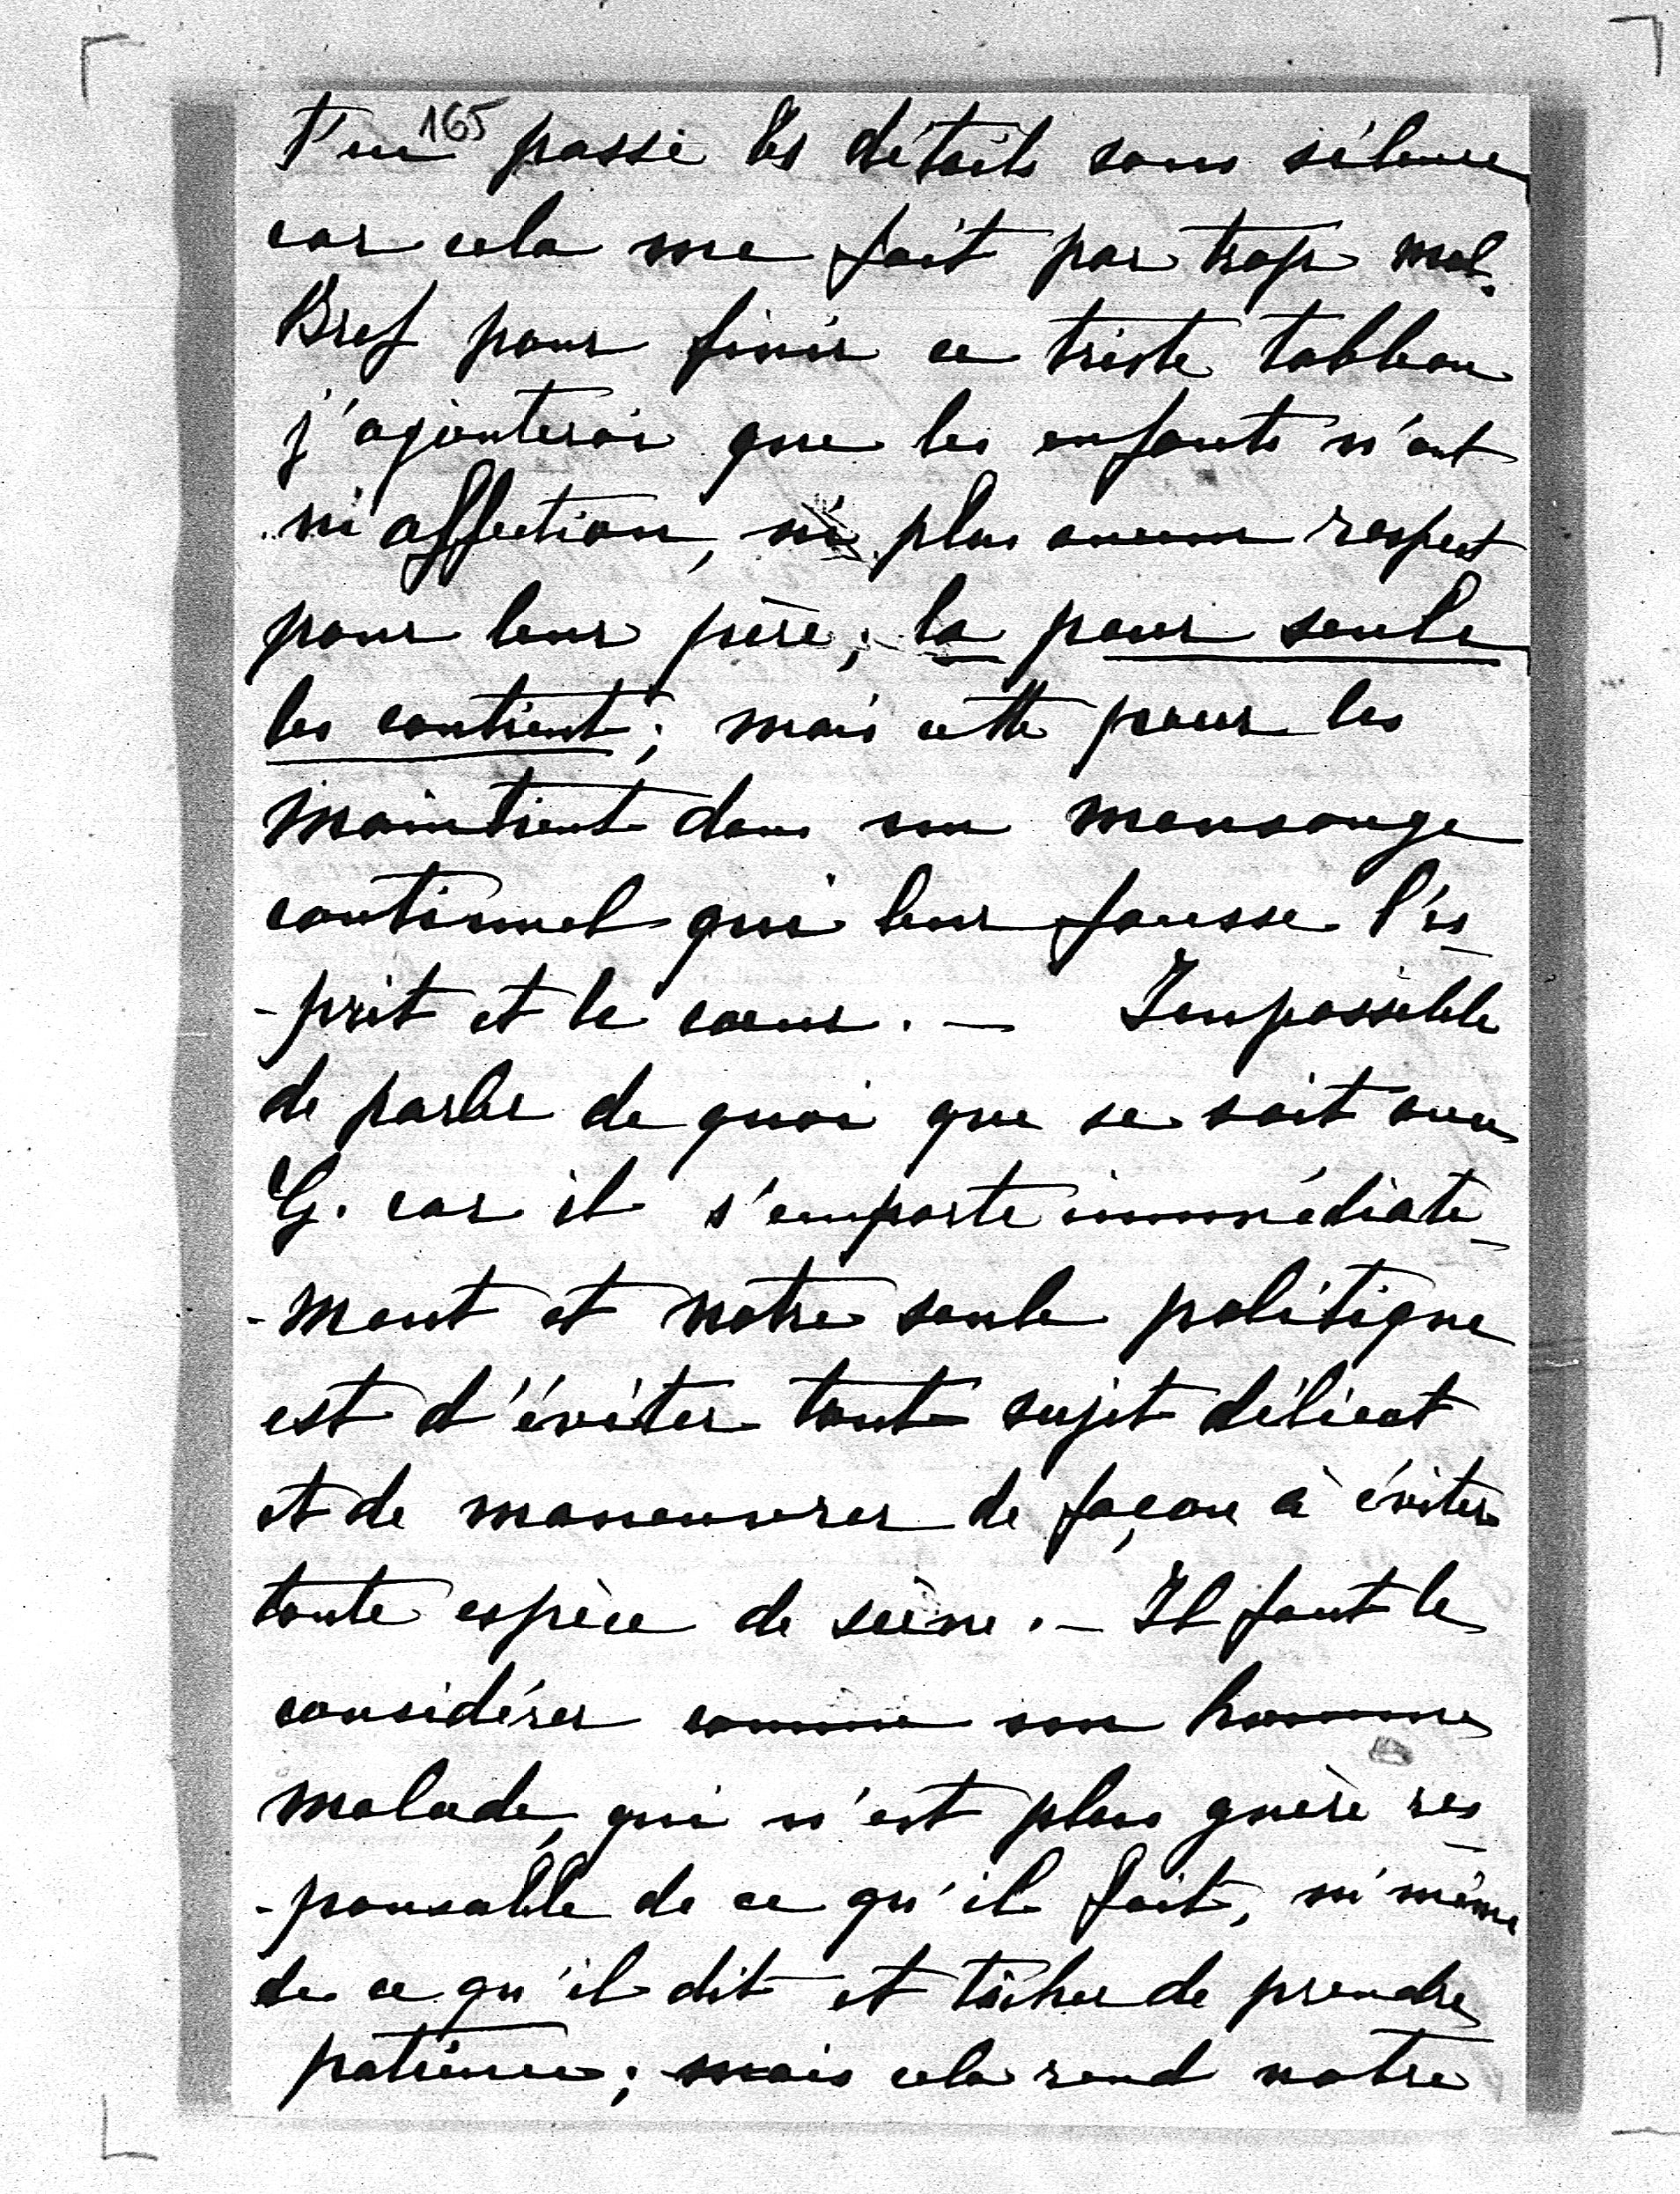 165
T'en passe les détails sous silence
car cela me fait par trop mal.
Bref pour finir ce triste tableau
j'ajouterai que les enfants n'ont
ni affection, ni plus aucun respect
pour leur père; la peur seule
les contient; mais cette peur les
maintient dans un mensonge
continuel qui leur fausse l'es-
-prit et le coeur. — Impossible
de parler de quoi que se soit avec
G. car il s'emporte immédiate-
-ment et notre seule politique
est d'éviter tout sujet délicat
et de manoeuvrer de façon à éviter
toute espèce de scène. — Il faut le
considérer comme un homme
malade, qui n'est plus guère res-
-ponsable de ce qu'il fait, ni même
de ce qu'il dit et tâcher de prendre
patience; mais cela rend notre